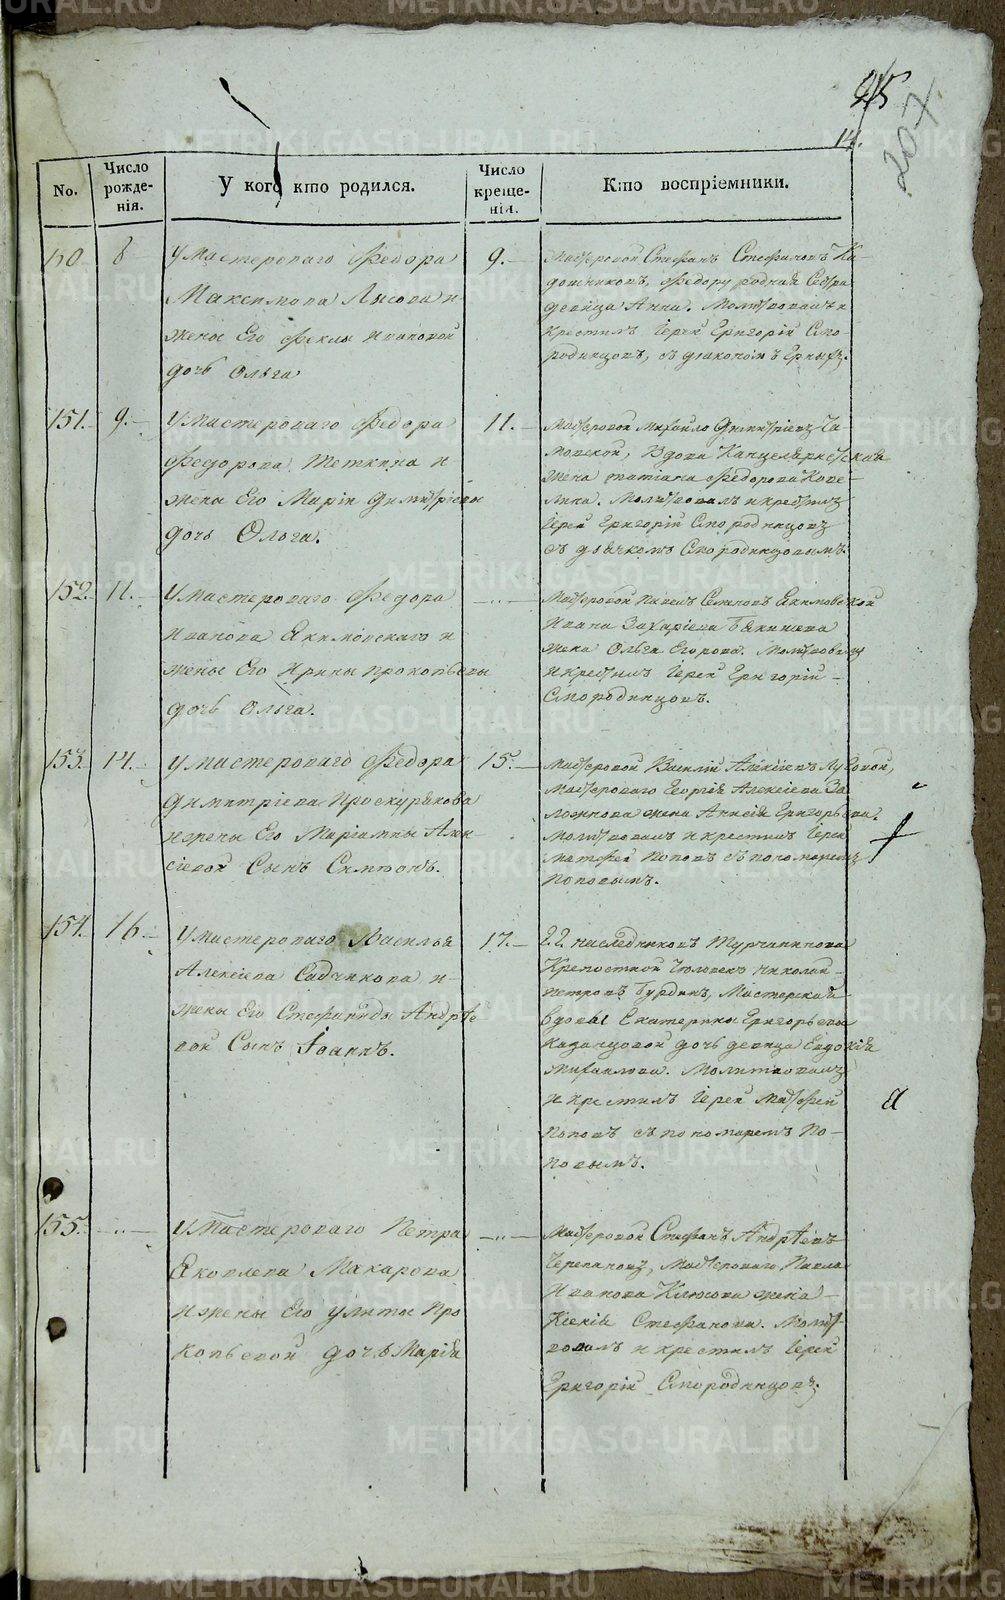 95
207.
14.
No.
Число рожде-нія.
У кого кто родился.
Число креще-нія.
Кто воспріемники.
150
8
У Мастероваго Федора
Максимова Лысова и
жены Его Феклы Ивановой
дочь Ольга
9.
Мастеровой Стефанъ Стефановъ Ка-
дошниковъ, Федору родная Сестра
девица Анна. Молитвовалъ и
крестилъ Іерей Григорій Смо
родинцовъ, съ діакономъ
151.
9.
У Мастероваго Федора
Федорова Теткина и
жена Его Маріи Димитріевы
дочь Ольга.
11.
Мастеровой Михайло Димитріевъ
Вдова Канцеляристская
жена татіана Федорова
Молитвовалъ и крестилъ
Іерей Григорій Смородинцовъ
съ дьячкомъ Смородинцовымъ.
152.
11.
У Мастероваго Федора
Иванова Екимовскаго и
жены Его Ирины Прокопьевы
дочь Ольга.
Мастеровой Павелъ Семеновъ Екимовской
Ивана Захаріева
жена Ольга Егорова. Молитвовалъ
и крестилъ Іерей Григорій
Смородинцовъ.
153.
14.
У Мастероваго Федора
Димитріева Проскурякова
и жены Его Маріамны Алек-
сіевой Сынъ Симеонъ.
15.
Мастеровой Василій Алексіевъ Луговой,
Мастероваго Георгія Алексіева За
ложнова жена Анисія Григорьева.
Молитвовалъ и крестилъ Іерей
Матфей Поповъ съ пономаремъ
Поповымъ.
154.
16.
У Мастероваго Василья
Алексіева Садчикова и
жены Его Стефаниды Андрѣе
вой Сынъ Іоаннъ.
17.
ГГ. наследниковъ Турчанинова
Крепостной Человекъ Николай
Петровъ Бурдинъ, Мастерской
вдовы Екатерины Григорьевы
Казанцовой дочь девица Евдокія
Михаилова. Молитвовалъ
и крестилъ Іерей Матфей
Поповъ съ пономаремъ По-
повымъ.
155.
У Мастероваго Петра
Яковлева Макарова
и жены Его Улиты Про
копьевой дочь Марія
Мастеровой Стефанъ Андрѣевъ
Черепановъ, Мастероваго Павла
Иванова Клюсова жена
Ксенія Стефанова. Молит-
вовалъ и крестилъ Іерей
Григорій Смородинцовъ.
METRIKI.GASO-URAL.RU